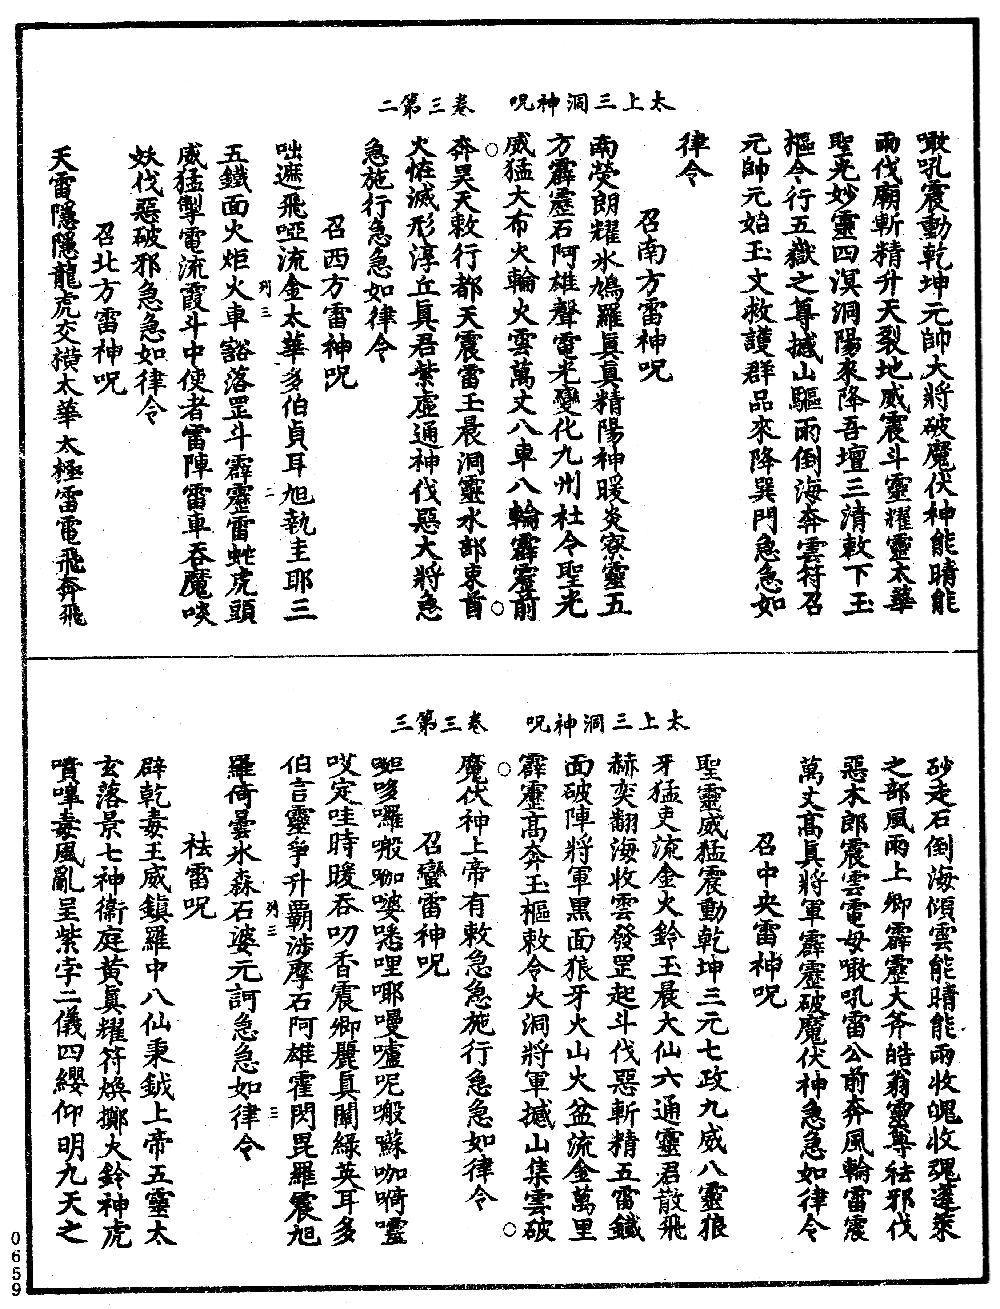 太上三洞神呪　卷三第二
噉吼震動乾坤元帥大將破魔伏神能晴能
雨伐廟斬精升天裂地威震斗靈耀靈太華
聖光妙靈四溟洞陽來降吾壇三清敕下玉
樞令行五嶽之尊撼山驅雨倒海奔雲符召
元帥元始玉文救護群品來降巽門急急如
律令
召南方雷神呪
南熒朗耀氷鳩羅真真精陽神暖炎寮靈五
方霹靂石阿雄聲電光變化九州杜令聖光
威猛大布火輪火雲萬丈八車八輪霹靂前
奔昊天敕行都天震雷王晨洞靈水部東酋
火佐滅形淳丘真君紫虛通神伐惡大將急
急施行急急如律令
召西方雷神呪
咄遮飛啞流金太華多伯貞耳旭執圭耶三
五鐵面火炬火車豁落罡斗霹靂雷虵虎頭
威猛掣電流霞斗中使者雷陣雷車吞魔啖
妖伐惡破邪急急如律令
召北方雷神呪
天雷隱隱龍虎交橫太華太極雷電飛奔飛
列三
二
太上三洞神呪　卷三第三
砂走石倒海傾雲能晴能雨收魄收魂蓬萊
之部風雨上卿霹靂大斧皓翁靈尊祛邪伐
惡木郎震雲電母噉吼雷公前奔風輪雷震
萬丈高真將軍霹靂破魔伏神急急如律令
召中央雷神呪
聖靈威猛震動乾坤三元七政九威八靈狼
牙猛吏流金火鈴玉晨大仙六通靈君散飛
赫奕翻海收雲發罡起斗伐惡斬精五雷鐵
面破陣將軍黑面狼牙火山火盆流金萬里
霹靂高奔玉樞敕令火洞將軍撼山集雲破
魔伏神上帝有敕急急施行急急如律令
召蠻雷神呪
呾哆囉喍咖婆㗭哩哪嘜嚧呢喍蘇咖㗨嚦
哎定哇時暖吞叨香震卿麗真闌綠英耳多
伯言靈爭升霸涉摩石阿雄霍閃毘羅震旭
羅倚曇氷森石婆元訶急急如律令
祛雷呪
辟乾毒王威鎮羅中八仙秉鉞上帝五靈太
玄落景七神衛庭黃真耀符煥擲火鈴神虎
噴嗥毒風亂呈紫字二儀四纓仰明九天之
列三
三
0659